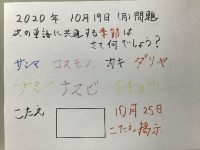 2020年 10月19日(月)問題
次の単語に共通する季節は
さて何でしょう?
サンマ コスモス カキ ダリヤ
ナシ ナスビ イチョウ
こたえ
10月25日
こたえ掲示